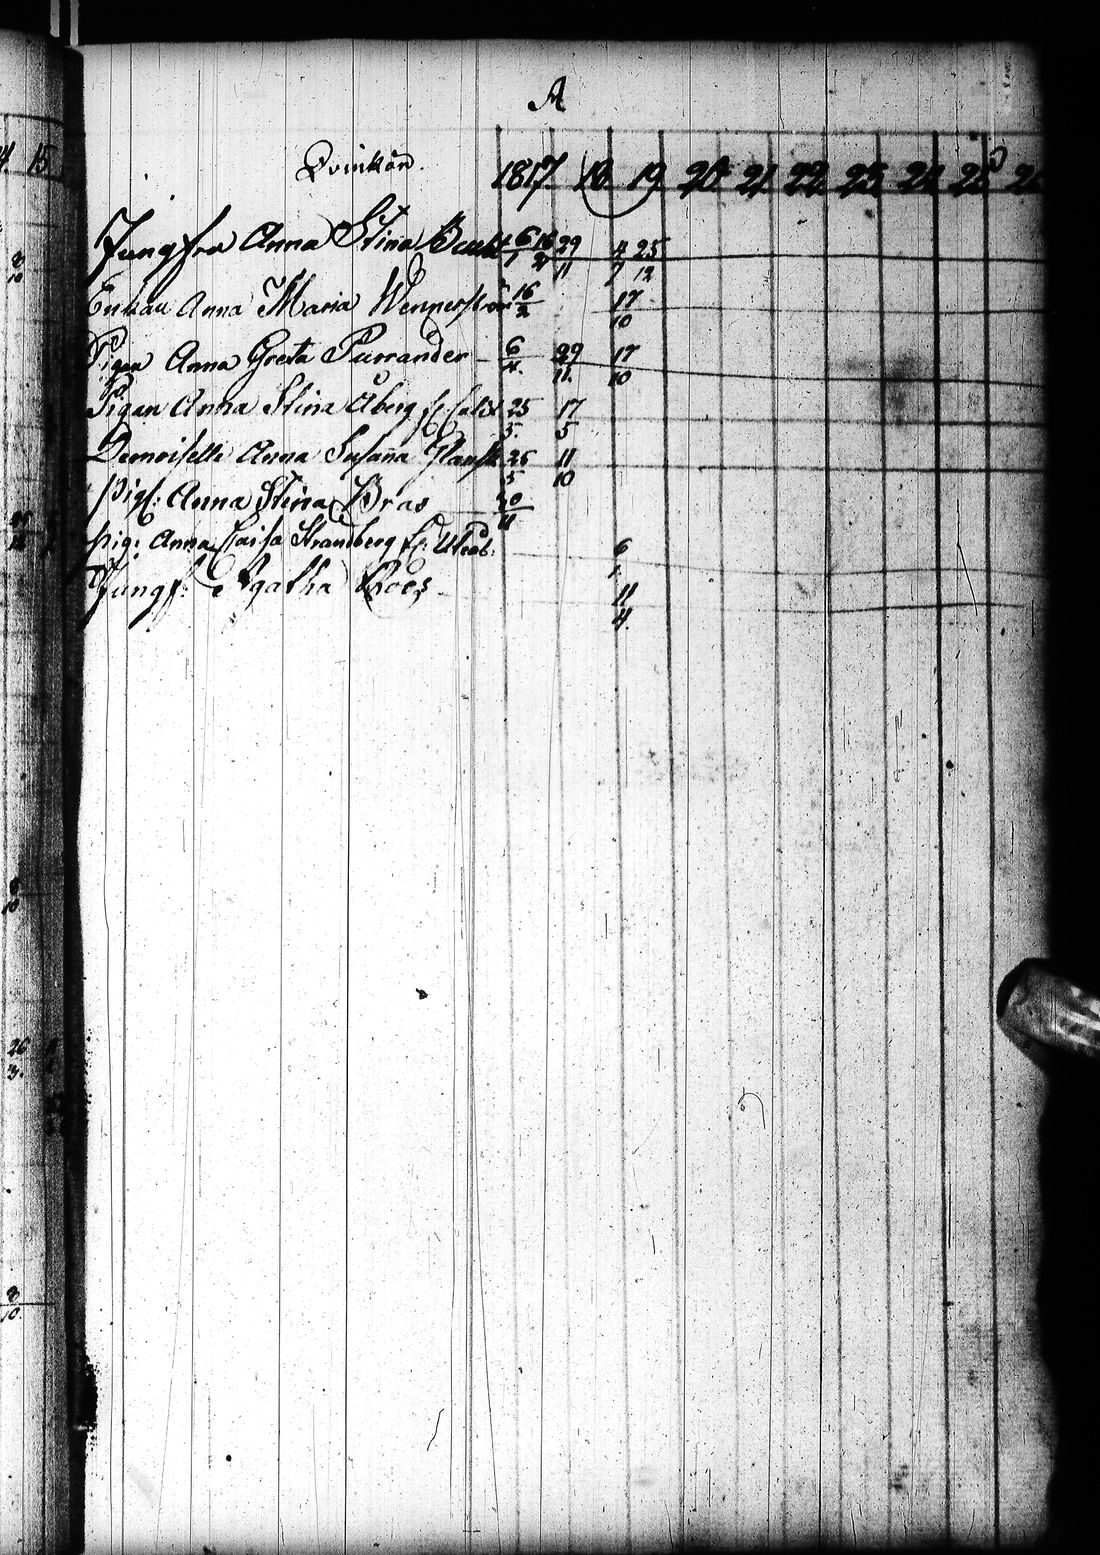 A
Qvinkön. 1817 18 19 20 21 22 23 24 25 26
Jungfru Anna Stina 6/1 16/2 29/11 4/7 25/12
Enkan Anna Maria Wennerström 16/2 17/10
Pigan Anna Greta Purrander 6/4. 29/11. 17/10
Pigan Anna Stina Åberg 25/5. 17/5
Demoiselle Anna Susanna 25/5 11/10
Pigl: Anna Stina Bras 20/11
pig: Anna Caisa Strandberg 6/1
Jungf: Agatha 11/4.